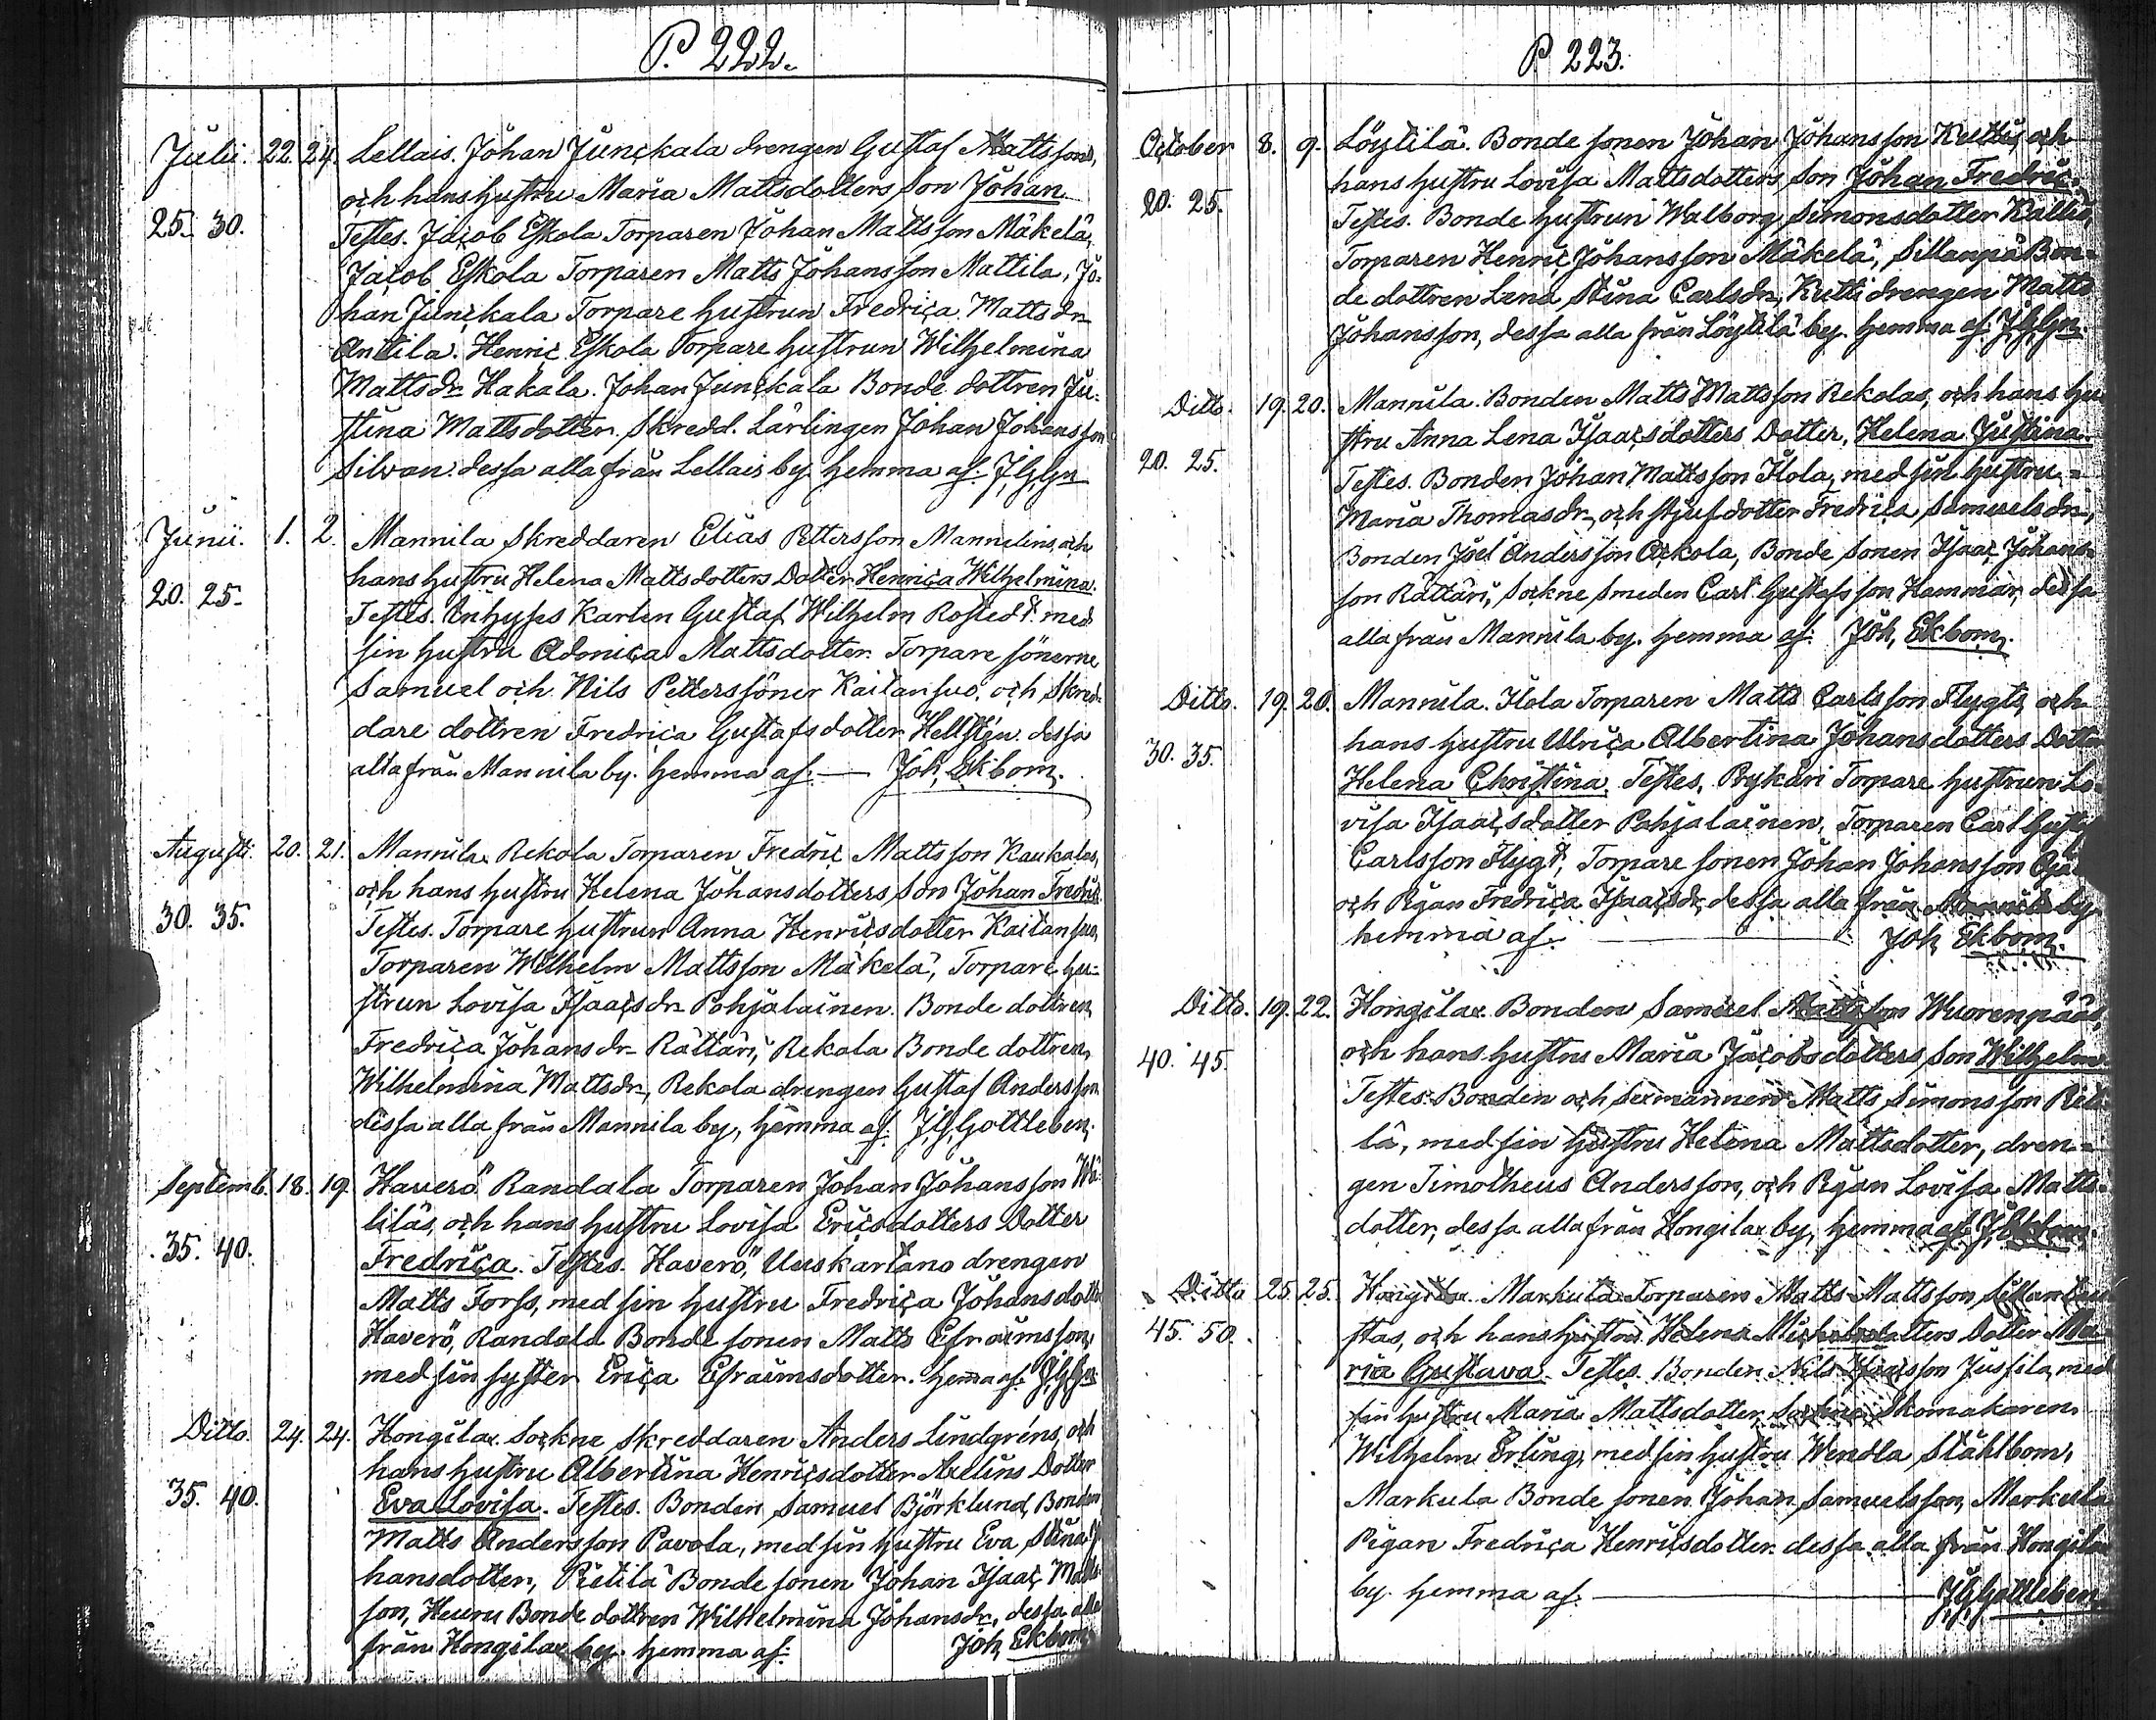 P. 222.
Julii. 22. 24. Lellais. Johan Junckala drengen Gustaf Mattssons,
och hans hustru Maria Mattsdotters Son Johan.
25. 30. Testes. Jacob Eskola Torparen Johan Mattsson Mäkelä,
Jacob Eskola Torparen Matts Johansson Mattila, Jo-
han Junckala Torpare hustrun Fredrica Mattsdr
Anttila. Henric Eskola Torpare hustrun Wilhelmina
Mattsdr Hakala. Johan Junckala Bonde dottren Ju-
stina Mattsdotter. Skredd. Lärlingen Johan Johansson
Silvan. dessa alla från Lellais by. hemma af. J.G.Gn
Junii. 1. 2. Mannila Skreddaren Elias Pettersson Mannelins, och
hans hustru Helena Mattsdotters Dotter Henrica Wilhelmina.
20. 25. Testes. Inhyses Karlen Gustaf Wilhelm Rostedt med
sin hustru Adonica Mattsdotter. Torpare sönerne
Samuel och Nils Petterssöner Kaitansuo, och Skred-
dare dottren Fredrica Gustafsdotter Hellstén. dessa
alla från Mannila by. hemma af. — Joh. Ekbom.
Augusti. 20. 21. Mannila Rekola Torparen Fredric Mattsson Kaukalas,
och hans hustru Helena Johansdotters Son Johan Fredric
30. 35. Testes. Torpare hustrun Anna Henricsdotter Kaitansuo,
Torparen Wilhelm Mattsson Mäkelä, Torpare hu-
strun Lovisa Isaacsdr Pohjalainen. Bonde dottren
Fredrica Johansdr Rättäri, Rekola Bonde dottren
Wilhelmina Mattsdr, Rekola drengen Gustaf Andersson
dessa alla från Mannila by, hemma af. J.G.Gottleben.
Septemb. 18. 19. Haverö Randala Torparen Johan Johansson
liläs, och hans hustru Lovisa Ericsdotters Dotter
35. 40. Fredrica. Testes. Haverö, Uuskartano drengen
Matts Forss, med sin hustru Fredrica Johansdott
Haverö, Randala Bonde sonen Matts Efraimsson,
med sin syster Erica Efraimsdotter. hemma af. J.G.Gn
Ditto. 24. 24. Hongila. Sockne Skreddaren Anders Lindgréns, och
hans hustru Albertina Henricsdotter Axelins Dotter
35. 40. Eva Lovisa. Testes. Bonden Samuel Björklund, Bonden
Matts Andersson Pavola, med sin hustru Eva Stina Jo
hansdotter, Pietilä Bonde sonen Johan Isaac Matts
son, Heuru Bonde dottren Wilhelmina Johansdr, dessa alla
från Hongila by. hemma af. Joh. Ekbom.
P. 223.
October 8. 9. Löytilä. Bonde sonen Johan Johansson Kuttis, och
hans hustru Lovisa Mattsdotters Son Johan Fredric.
20. 25. Testes. Bonde hustrun Walborg Simonsdotter Kallio,
Torparen Henric Johansson Mäkelä, Sillanpä Bon-
de dottren Lena Stina Carlsdr, Kutti drengen Matts
Johansson, dessa alla från Löytilä by. hemma af. J.G.Gn.
Ditto. 19. 20. Mannila. Bonden Matts Mattsson Rekolas, och hans hu
stru Anna Lena Isaacsdotters Dotter, Helena Justina.
20. 25. Testes. Bonden Johan Mattsson Ilola, med sin hustru
Maria Thomasdr, och stjufdotter Fredrica Samuelsdr,
Bonden Josef Andersson Ackola, Bonde sonen Isaac Johans-
son Rättäri, Sockne Smeden Carl Gustafsson Hammar, dessa
alla från Mannila by. hemma af. Joh. Ekbom.
Ditto. 19. 20. Mannila. Ilola Torparen Matts Carlsson Flygts, och
hans hustru Ulrica Albertina Johansdotters Dotter
30. 35. Helena Christina. Testes. Prykäri Torpare hustrun Lo-
visa Isaacsdotter Pohjalainen, Torparen Carl Gustaf
Carlsson Flygt, Torpare sonen Johan Johansson
och Pigan Fredrica Isaacsdr, dessa alla från Mannila by
hemma af. Joh. Ekbom.
Ditto. 19. 22. Hongila. Bonden Samuel Mattsson Wuorenpääs,
och hans hustru Maria Jacobsdotters Son Wilhelm.
40. 45. Testes. Bonden och Sexmannen Matts Simonsson
lä, med sin hustru Helena Mattsdotter, dren-
gen Timotheus Andersson, och Pigan Lovisa Matts-
dotter, dessa alla från Hongila by, hemma af. J. Ekbom.
Ditto 25. 25. Hongila. Markula Torparen Matts Mattsson
stas, och hans hustru Helena Michelsdotters Dotter Ma-
45. 50. ria Gustava. Testes. Bonden Nils Isacsson Jussila, med
sin hustru Maria Mattsdotter, Sockne Skomakaren
Wilhelm Erling, med sin hustru Wendla Ståhlbom,
Markula Bonde sonen Johan Samuelsson, Markula
Pigan Fredrica Henricsdotter. dessa alla från Hongila
by. hemma af. — J.G.Gottleben.